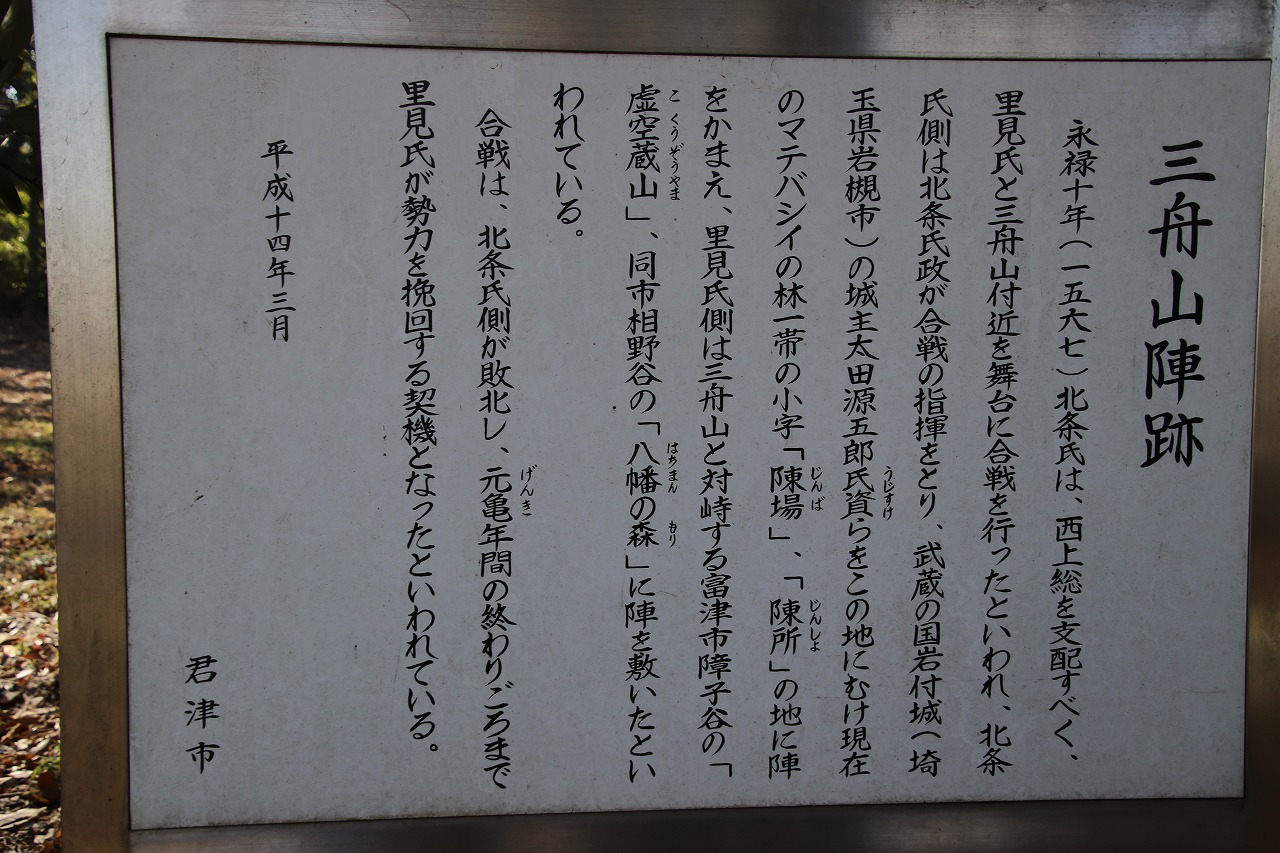 三舟山陣跡
永禄十年(一五六七)北条氏は、西上総を支配すべく、
里見氏と三舟山付近を舞台に合戦を行ったといわれ、北条
氏側は北条氏政が合戦の指揮をとり、武蔵の国岩付城(埼
玉県岩槻市)の城主太田源五郎氏資らをこの地にむけ現在
うじすけ
のマテバシイの林一帯の小字「陳場」、「陳所」の地に陣
じんば
じんしょ
をかまえ、里見氏側は三舟山と対峙する富津市障子谷の「
虚空蔵山」、同市相野谷の「八幡の森」に陣を敷いたとい
こくうぞうやま
はちまん
もり
われている。
合戦は、北条氏側が敗北し、元亀年間の終わりごろまで
げんき
里見氏が勢力を挽回する契機となったといわれている。
平成十四年三月
君津市